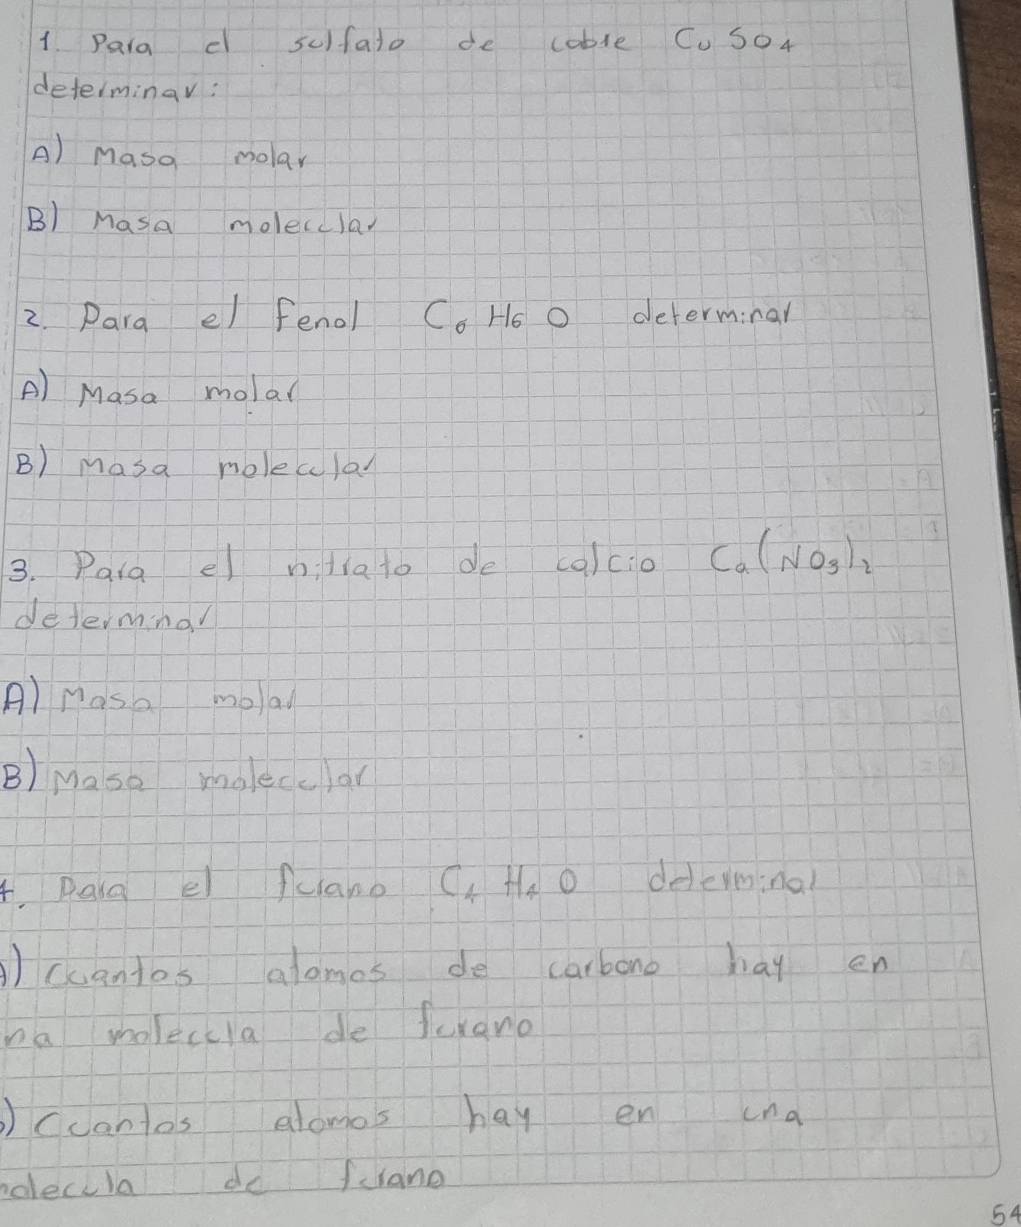 1. Para el sulfato de cobre CuSO4
determinar:
A) Masa molar
B) Masa molecular
2. Para el fenol C6H6O determinar
A) Masa molar
B) Masa molecular
3. Para el nitrato de calcio Ca(NO3)2
determinar
A) Masa molar
B) Masa molecular
4. Para el furano C4H4O determinar
A) Cuantos atomos de carbono hay en
na molecula de furano
B) Cuantos atomos hay en una
molecula de furano
54